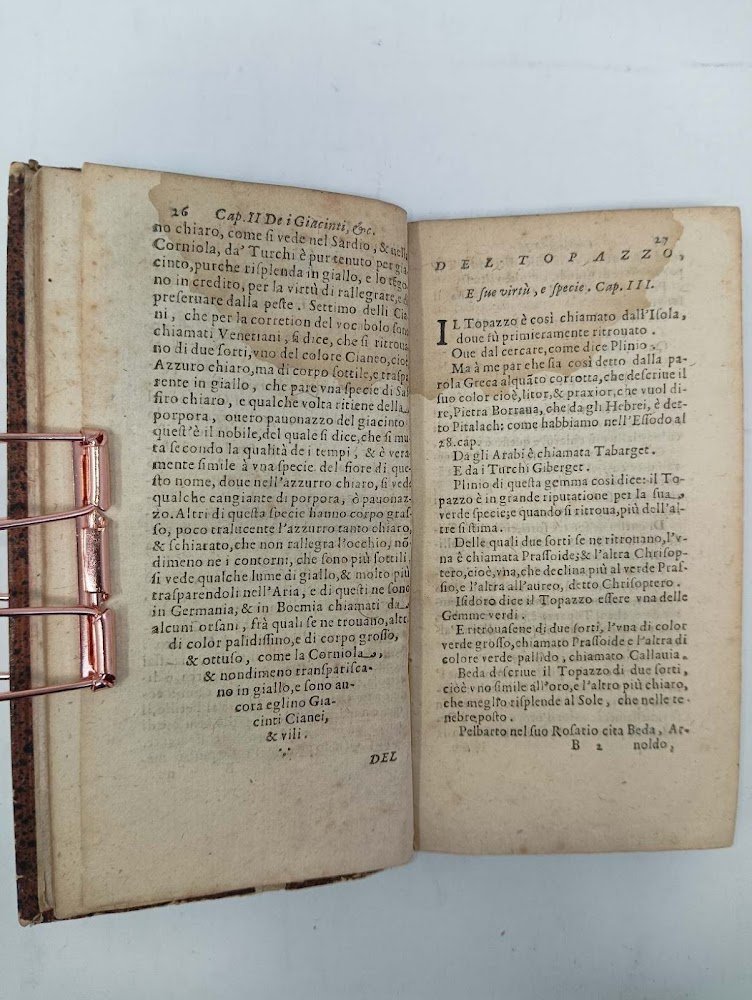 26 Cap. II De i Giacinti, &c.
no chiaro, come ſi vede nel Sardio, & nella
Corniola, da' Turchi è pur tenuto per gia
cinto, purche riſplenda in giallo, e lo tẽgo
no in credito, per la virtù di rallegrare, e di
preſeruare dalla peſte. Settimo delli Cia
ni, che per la corretion del voc bolo ſono
chiamati Venetiani, ſi dice, che ſi ritroua
no di due ſorti, vno del colore Cianeo, cioè
Azzuro chiaro, ma di corpo ſottile, e traſpa
rente in giallo, che pare vna ſpecie di Saf
firo chiaro, e qualche volta ritiene della
porpora, ouero pauonazzo del giacinto
queſt'è il nobile, del quale ſi dice, che ſi mu
ta ſecondo la qualità de i tempi, & è vera
mente ſimile à vna ſpecie del fiore di que
ſto nome, doue nell'azzurro chiaro, ſi vede
qualche cangiante di porpora, ò pauonaz
zo. Altri di queſta ſpecie hanno corpo graſ
ſo, poco tralucente l'azzurro tanto chiaro,
& ſchiarato, che non rallegra l'occhio, no
dimeno ne i contorni, che ſono più ſottili
ſi vede qualche lume di giallo, & molto più
traſparendoli nell'Aria, e di queſti ne ſono
in Germania, & in Boemia chiamati da
alcuni orfani, frà quali ſe ne trouano, altri
di color palidiſſino, e di corpo groſſo,
& ottuſo, come la Corniola,
& nondimeno tranſpariſca-
no in giallo, e ſono an-
cora eglino Gia-
cinti Cianei,
& vili.
DEL
27
DEL TOPAZZO,
E ſue virtù, e ſpecie. Cap. III.
IL Topazzo è così chiamato dall'Iſola,
doue fù primieramente ritrouato.
Oue dal cercare, come dice Plinio.
Ma à me par che ſia così detto dalla pa-
rola Greca alquãto corrotta, che deſcriue il
ſuo color cioè, litor, & praxior, che vuol di-
re, Pietra Borraua, che da gli Hebrei, è det-
to Pitalach: come habbiamo nell'Eſſodo al
28. cap.
Da gli Arabi è chiamata Tabarget.
E da i Turchi Giberget.
Plinio di queſta gemma così dice: il To-
pazzo è in grande riputatione per la ſua
verde ſpecie; e quando ſi ritroua, più dell'al-
tre ſi ſtima.
Delle quali due ſorti ſe ne ritrouano, l'v-
na è chiamata Praſſoide; & l'altra Chriſop-
tero, cioè, vna, che declina più al verde Praſ-
ſio, e l'altra all'aureo, detto Chriſoptero.
Iſidoro dice il Topazzo eſſere vna delle
Gemme verdi.
E ritrouaſene di due ſorti, l'vna di color
verde groſſo, chiamato Praſſoide e l'altra di
colore verde pallido, chiamato Callauia.
Beda deſcriue il Topazzo di due ſorti,
cioè vno ſimile all'oro, e l'altro più chiaro,
che meglio riſplende al Sole, che nelle te-
nebre poſto.
Pelbarto nel ſuo Roſario cita Beda, Ar-
B 2 noldo,